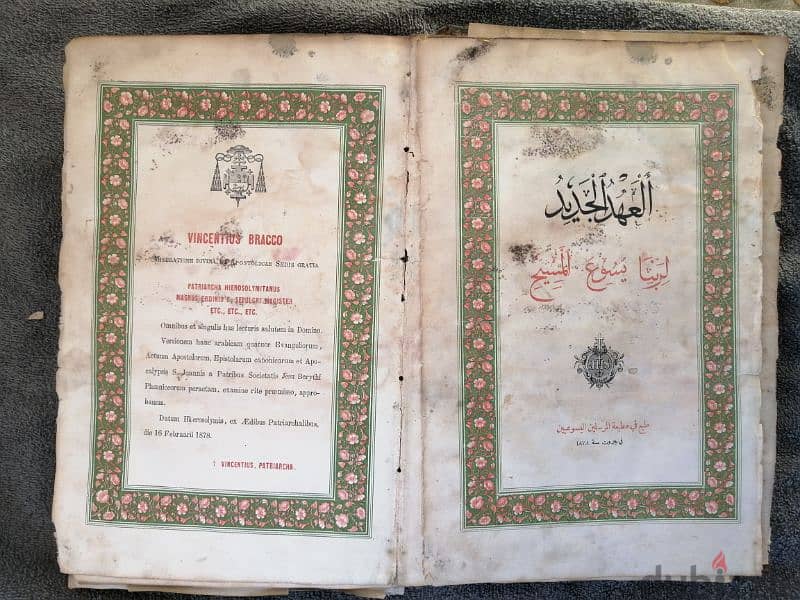 VINCENTIUS BRACCO
MISERATIONE DIVINA ET APOSTOLICAE SEDIS GRATIA
PATRIARCHA HIEROSOLYMITANUS
MAGNUS ORDINIS S. SEPULCRI MAGISTER
ETC., ETC., ETC.
Omnibus et singulis has lecturis salutem in Domino.
Versionem hanc arabicam quatuor Evangeliorum,
Actuum Apostolorum, Epistolarum canonicarum et Apo-
calypsis S. Joannis a Patribus Societatis Jesu Berythi
Phœnicorum peractam, examine rite præmisso, appro-
bamus.
Datum Hierosolymis, ex Ædibus Patriarchalibus,
die 16 Februarii 1878.
† VINCENTIUS, PATRIARCHA.
أَلْعَهْدُ ٱلْجَدِيدُ
لِرَبِّنَا يَسُوعَ ٱلْمَسِيحِ
IHS
طبع في مطبعة المرسلين اليسوعيين
في بيروت سنة ١٨٧٨
dubizzle